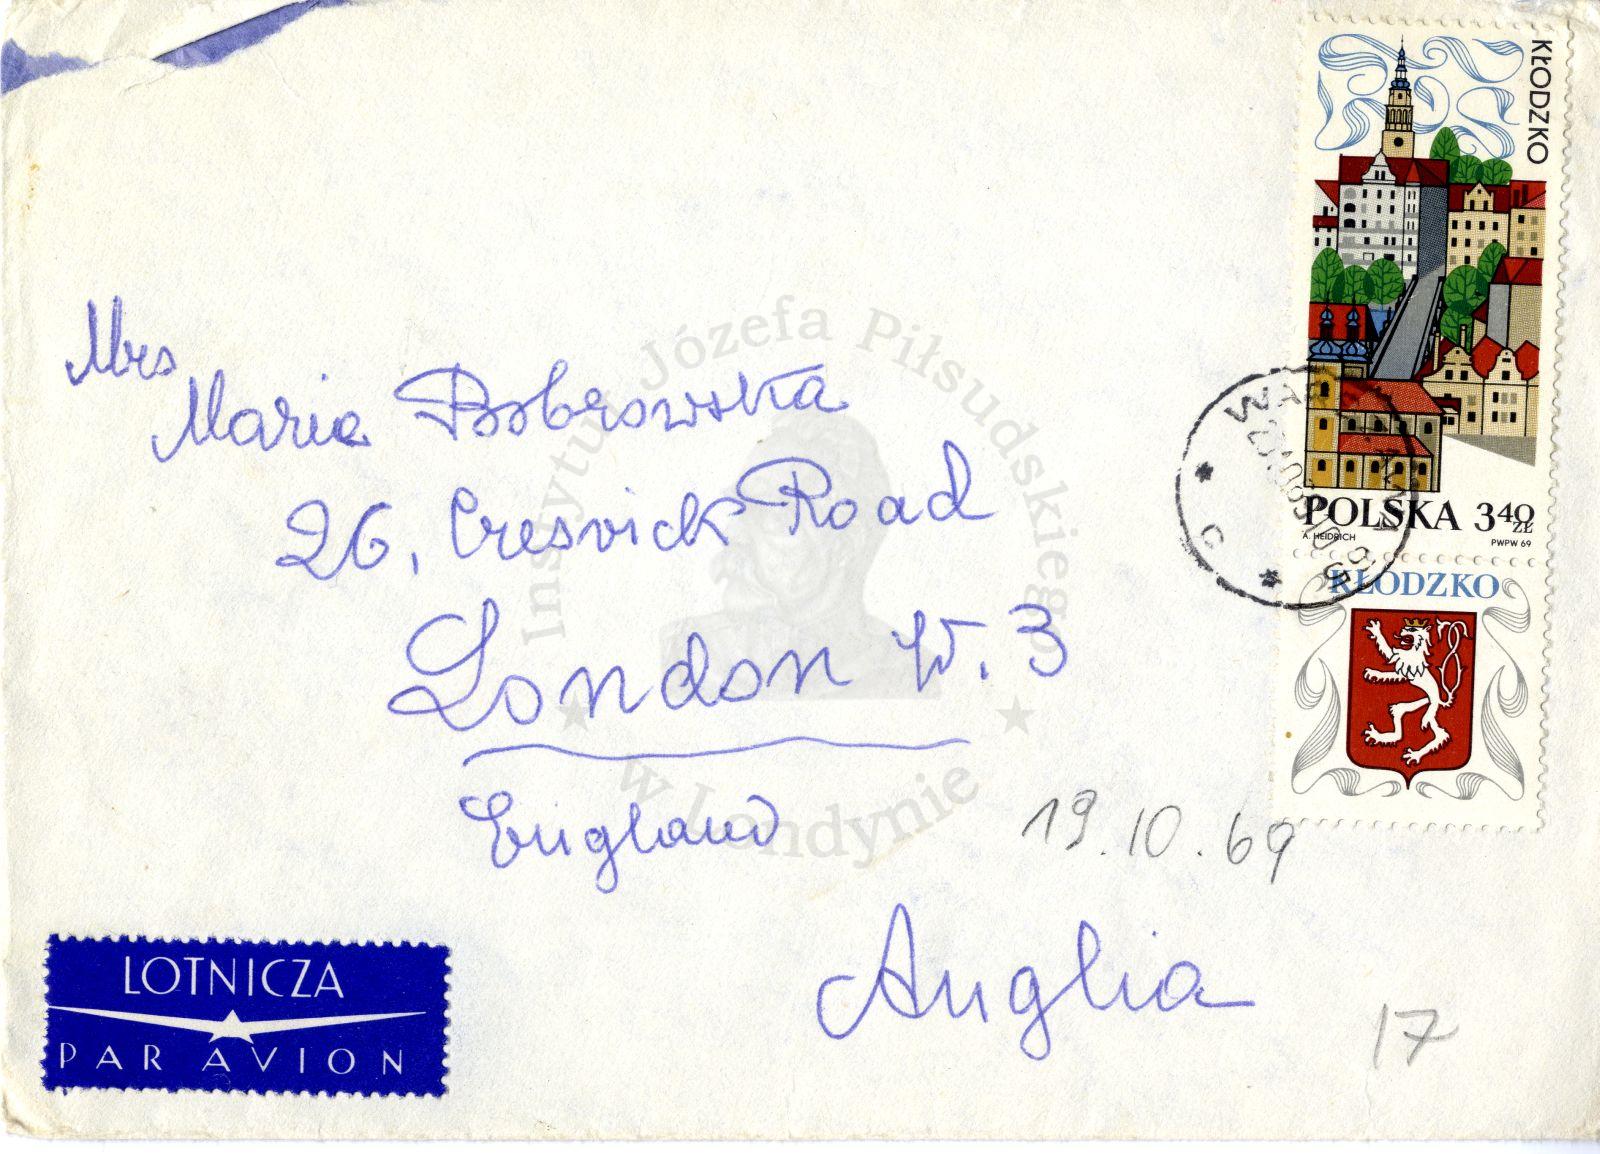 KŁODZKO
POLSKA 3 40 ZŁ
A. HEIDRICH PWPW 69
KŁODZKO
Mrs
Maria Bobrowska
26, Cresvick Road
London W. 3
England
19.10.69
Anglia
17
LOTNICZA
PAR AVION
Instytut Józefa Piłsudskiego
w Londynie